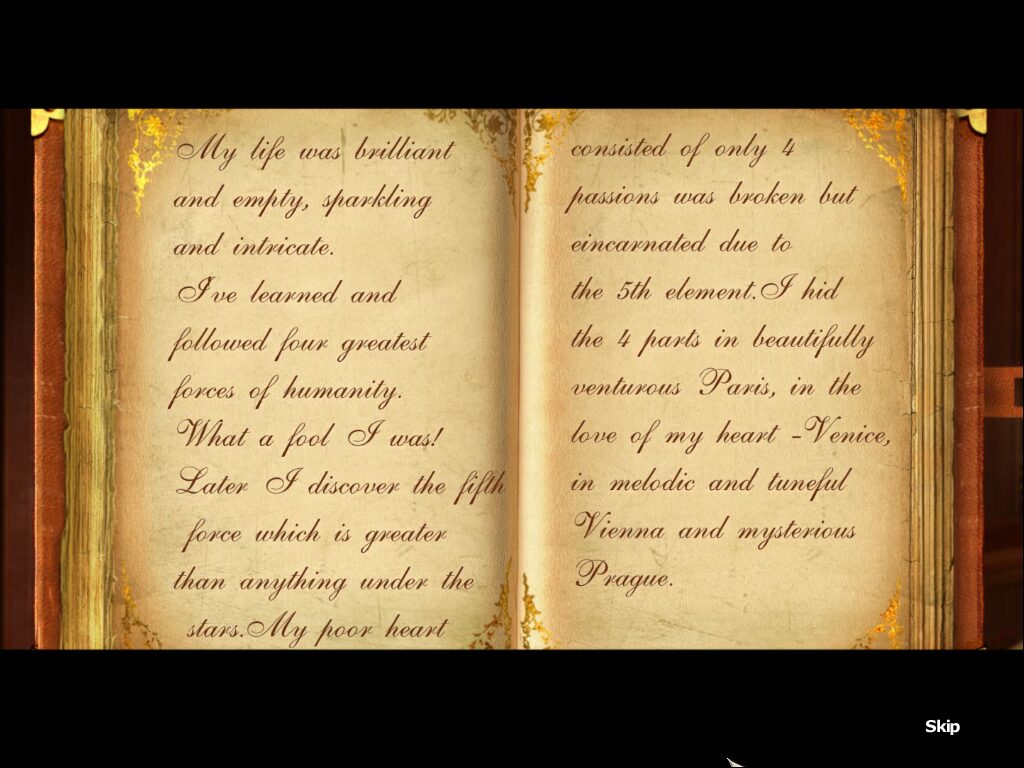 My life was brilliant
and empty, sparkling
and intricate.
I've learned and
followed four greatest
forces of humanity.
What a fool I was!
Later I discover the fifth
force which is greater
than anything under the
stars.My poor heart
consisted of only 4
passions was broken but
eincarnated due to
the 5th element.I hid
the 4 parts in beautifully
venturous Paris, in the
love of my heart -Venice,
in melodic and tuneful
Vienna and mysterious
Prague.
Skip